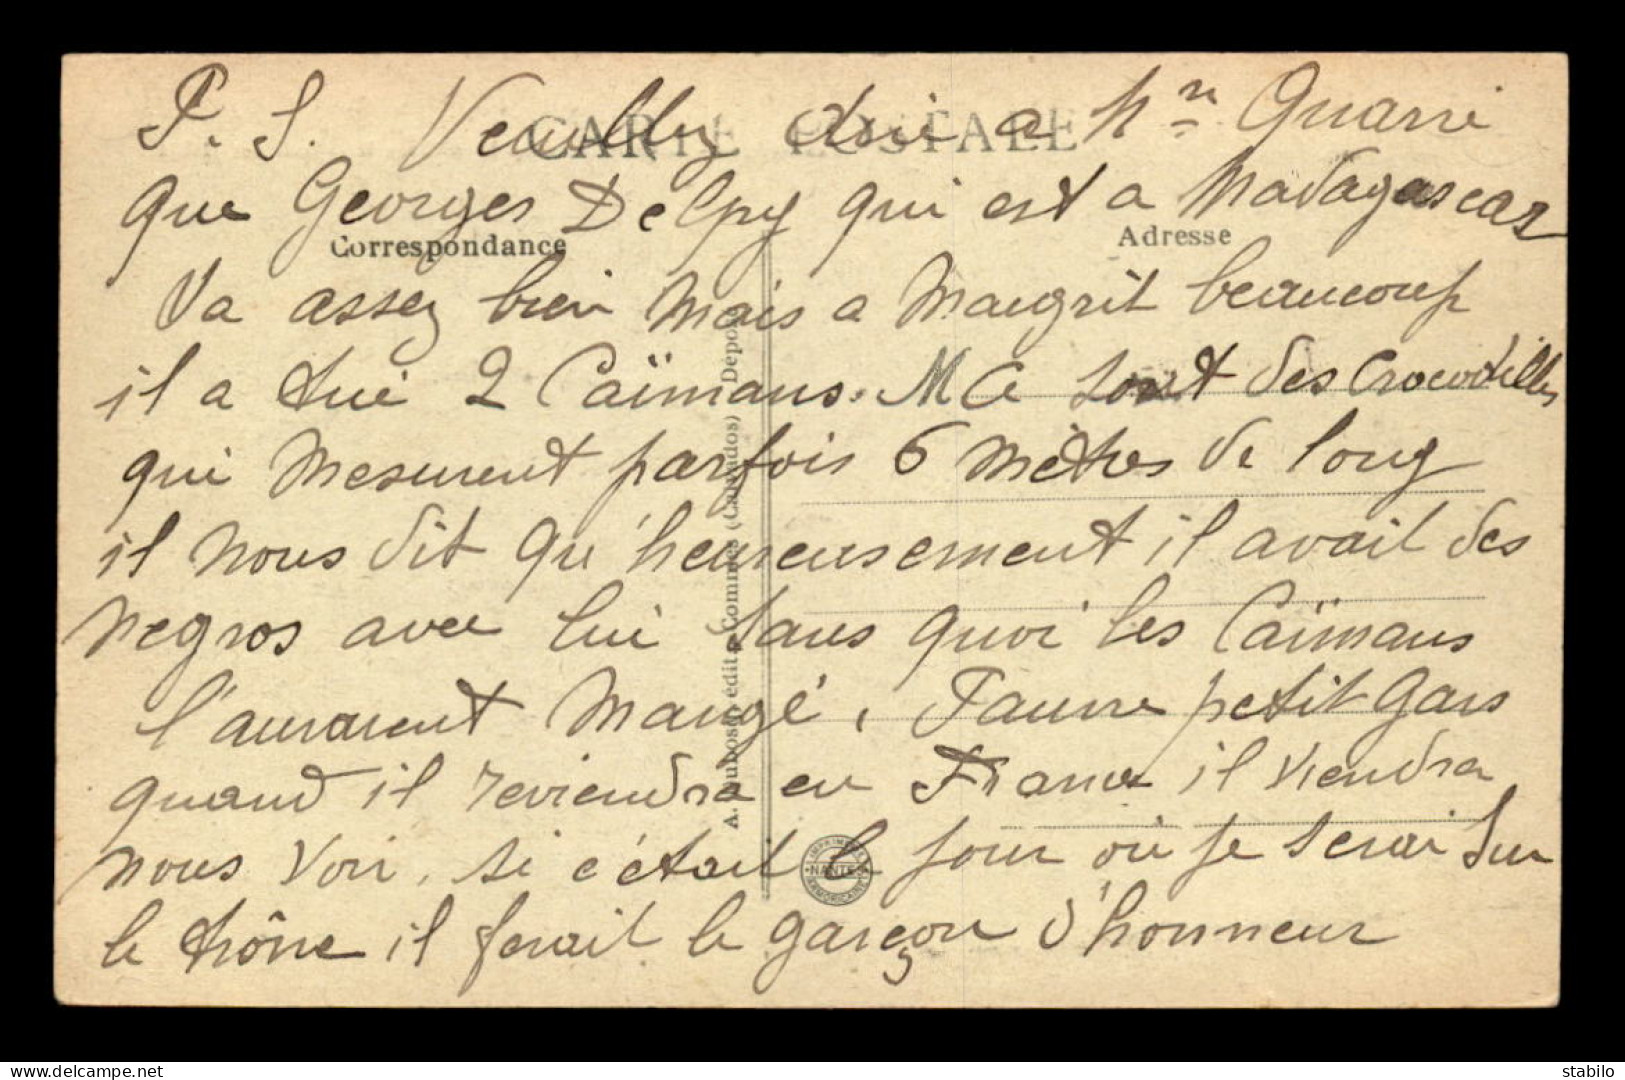 CARTE POSTALE
P. S. Veuillez dire a Mr Quarré
que Georges Delpy qui est a Madagascar
Correspondance
Adresse
Va assez bien mais a maigrit beaucoup
il a tué 2 Caïmans. Ce sont des Crocodilles
qui mesurent parfois 6 mètres de long
il nous dit qu'heureusement il avait des
negros avec lui sans quoi les Caïmans
l'auraient mangé, Pauvre petit gars
quand il reviendra en France il viendra
nous voir, si c'était le jour où je serai sur
le trône il serait le garçon d'honneur
A. Dubosq, édit., Commes (Calvados) Déposé
IMPRIMERIE ARMORICAINE
NANTES
delcampe.net
stabilo